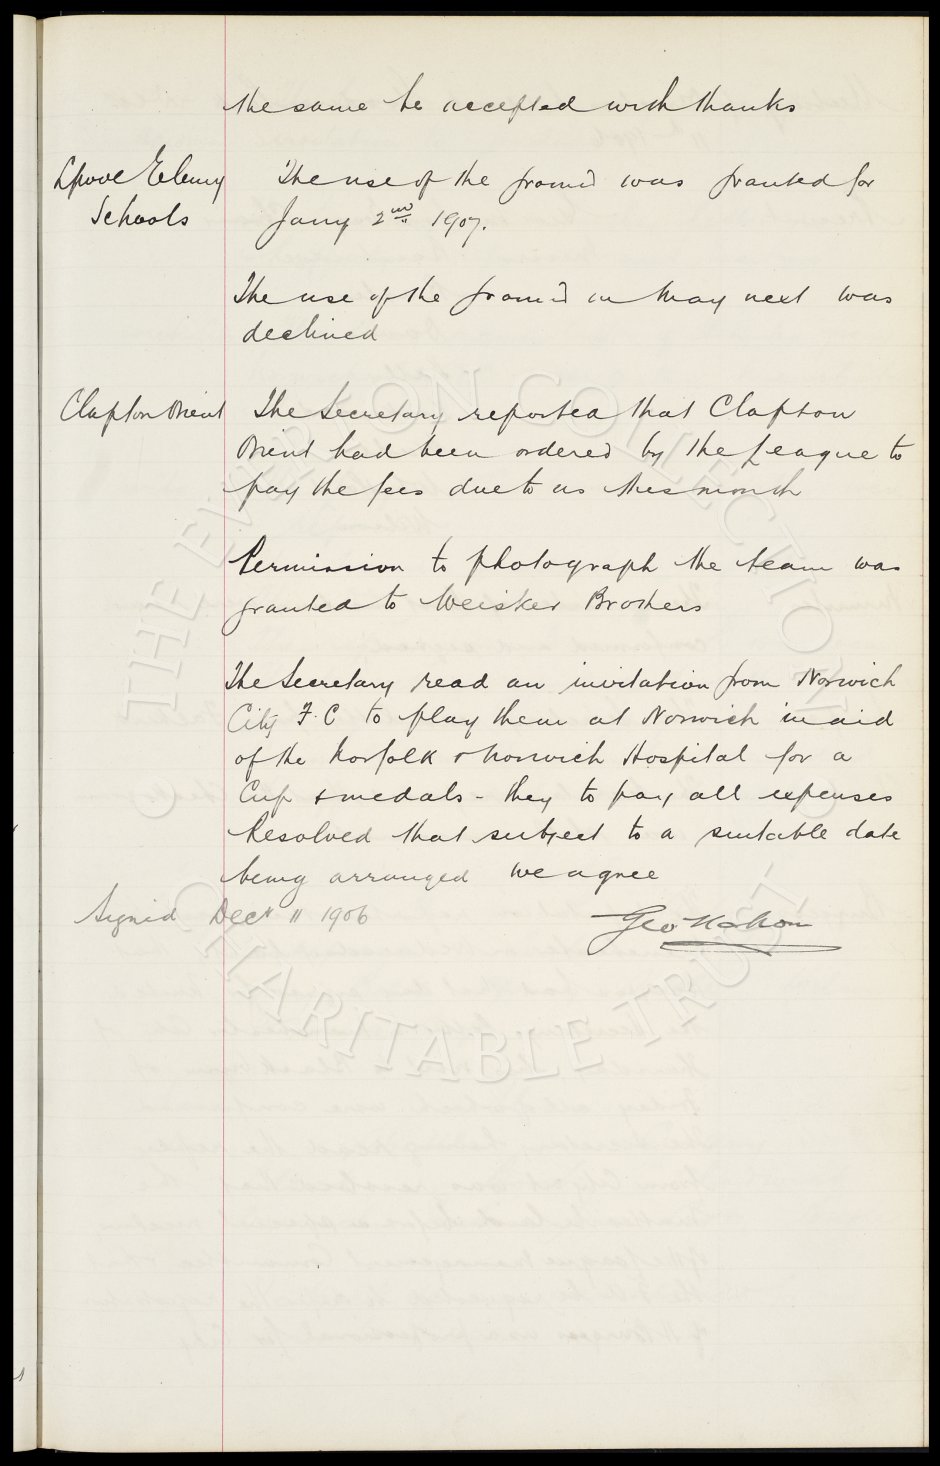 the same be accepted with thanks
L'pool Elemy
Schools
The use of the ground was granted for
Jany 2nd 1907.
The use of the ground in May next was
declined
Clapton Orient
The Secretary reported that Clapton
Orient had been ordered by the League to
pay the fees due to us this month
Permission to photograph the team was
granted to Weisker Brothers
The Secretary read an invitation from Norwich
City F.C to play them at Norwich in aid
of the Norfolk & Norwich Hospital for a
Cup & medals - they to pay all expenses
Resolved that subject to a suitable date
being arranged we agree
Signed Decr 11 1906
Geo Mahon
© THE EVERTON COLLECTION
CHARITABLE TRUST